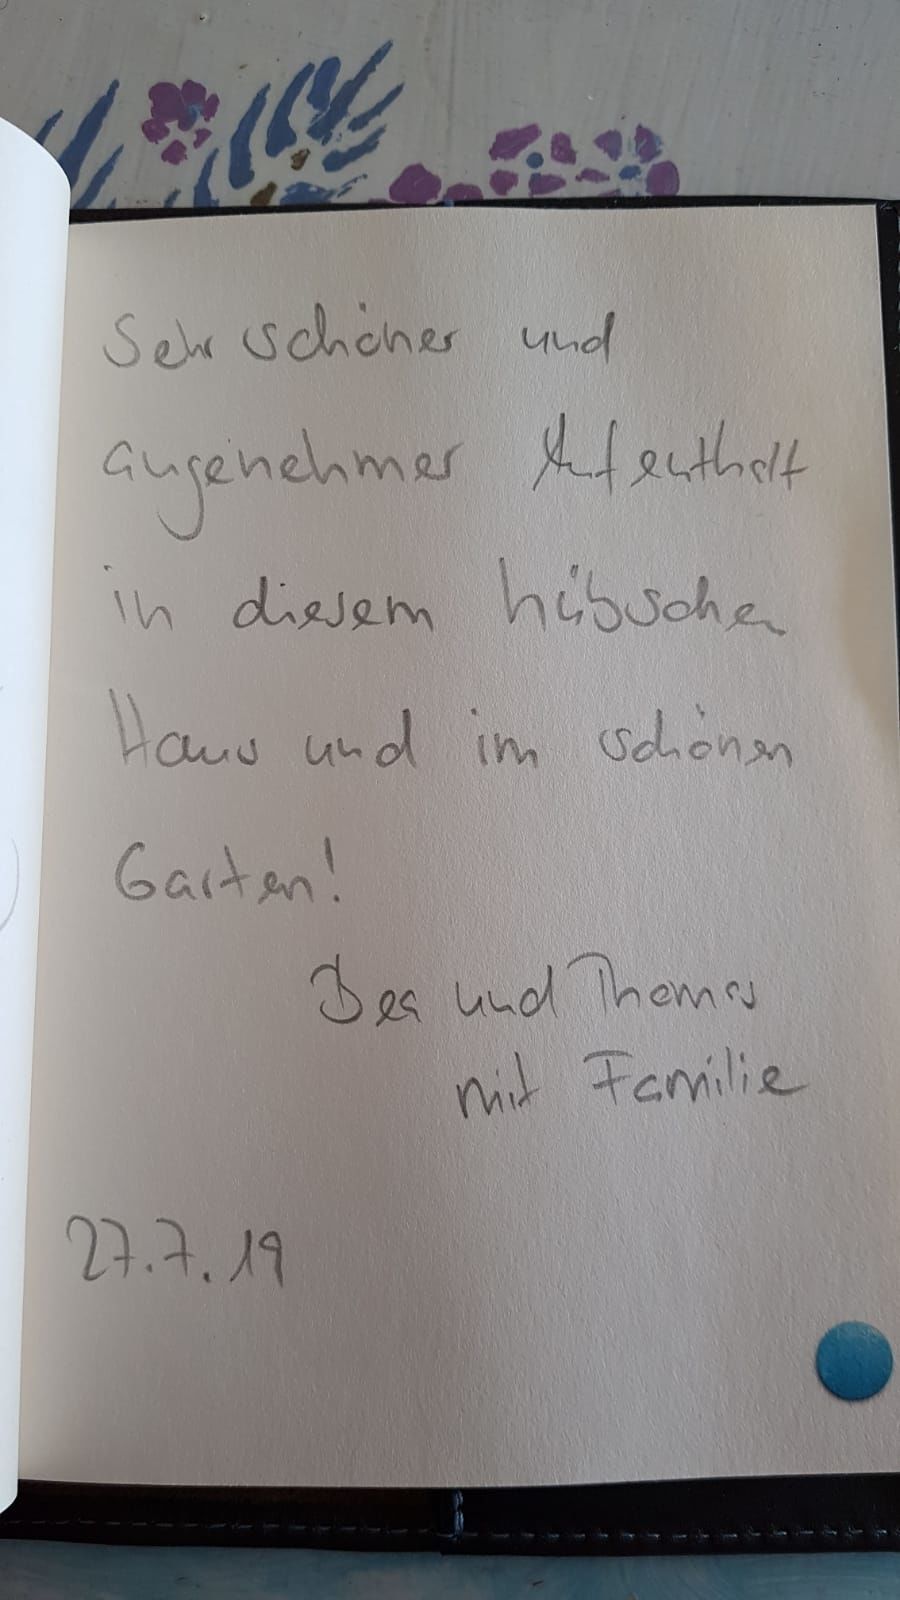 Sehr schöner und
angenehmer Aufenthalt
in diesem hübschen
Haus und im schönen
Garten!
Bea und Thomas
mit Familie
27.7.19